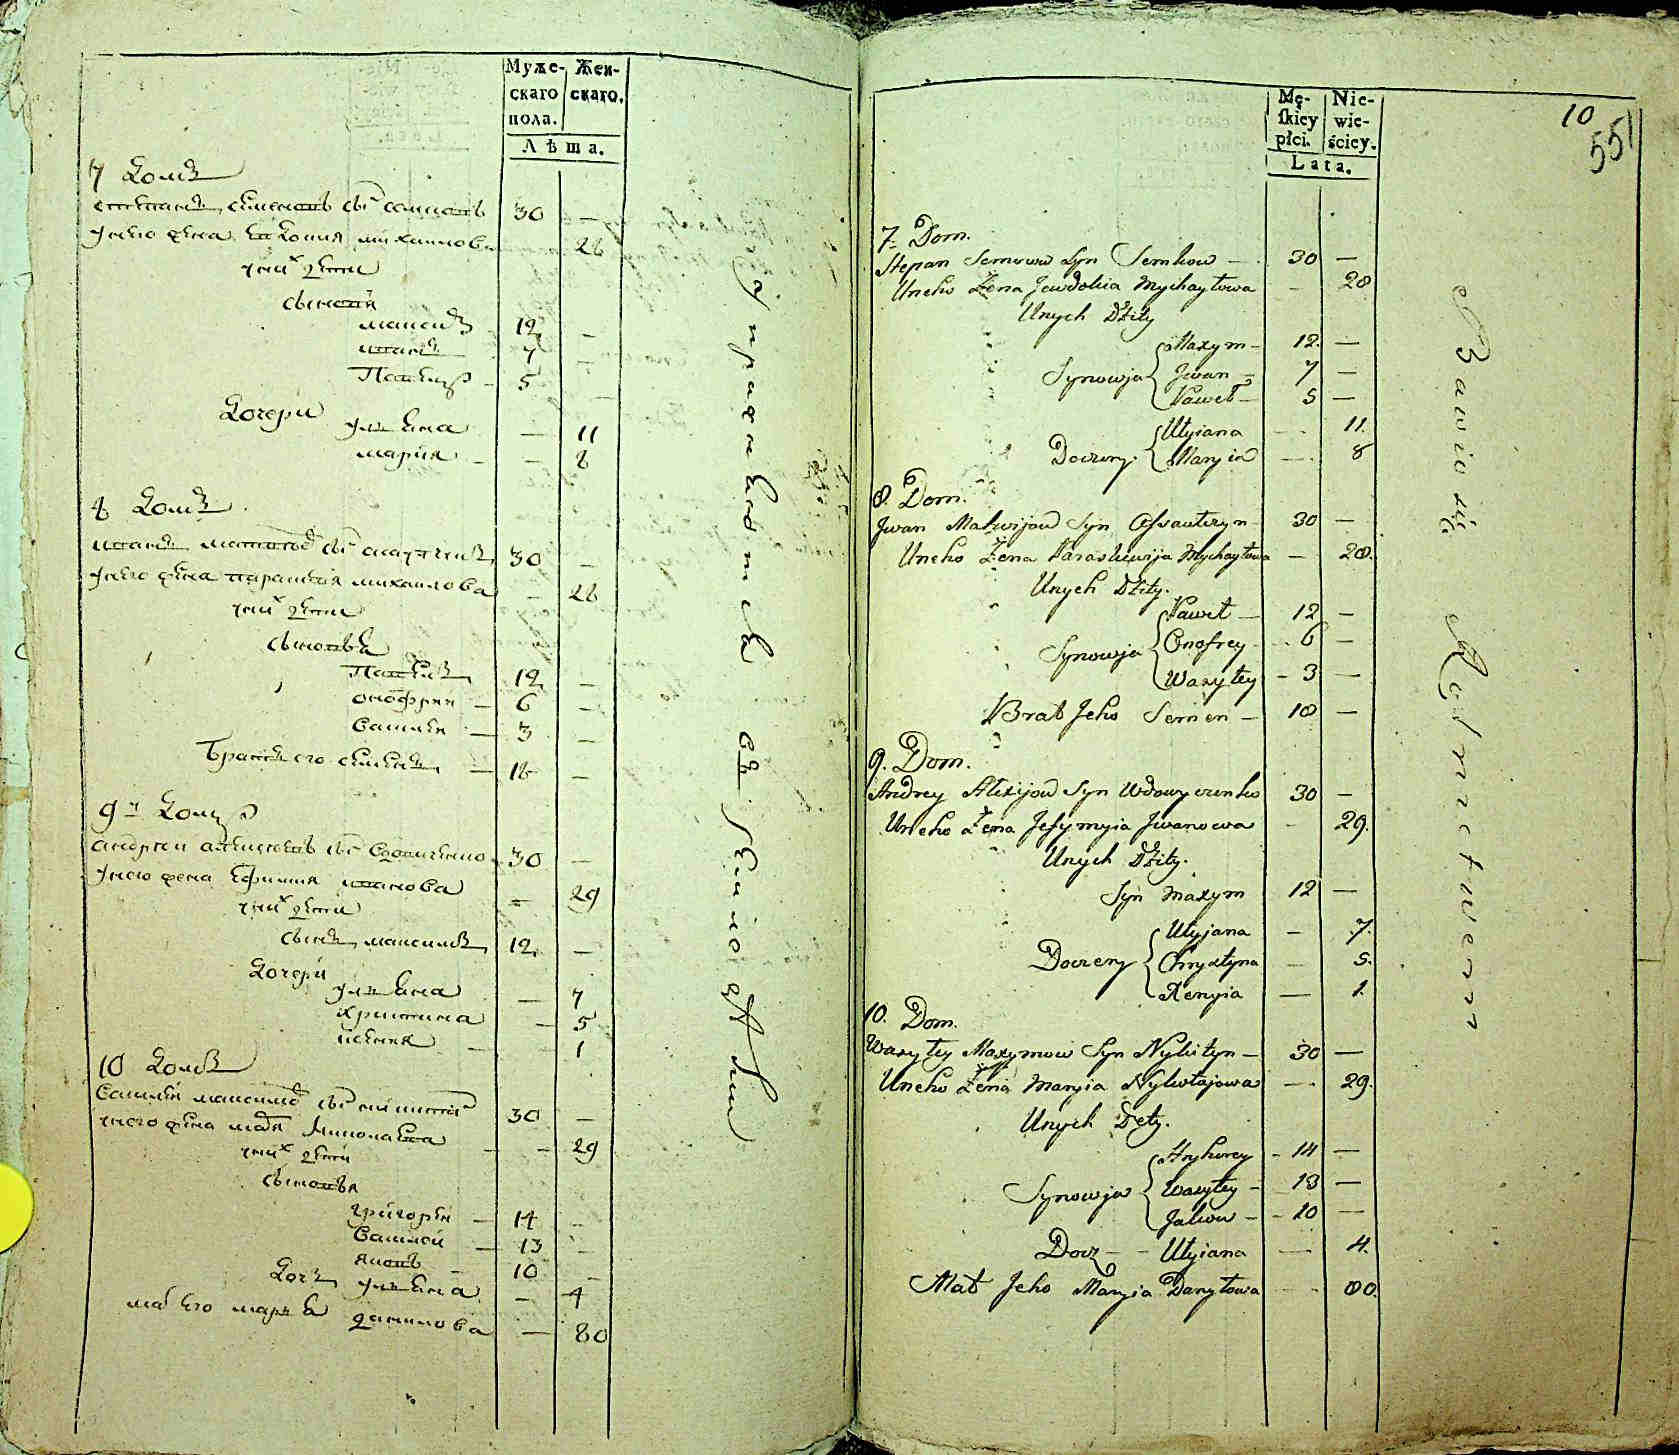 Муже-
скаго
пола.
Жен-
скаго.
Лѣта.
7 домъ
степанъ семеновъ сы͠ семковъ 30 —
унего жена евдокия михаилова 28
униͯ дети
сыновя
максимъ 12 —
иванъ 7 —
Павелъ 5 —
дочери
улияна — 11
мария — 8
8 домъ
иванъ 30 —
унего жена параскевия михаилова — 28
униͯ дети
сыновья
Павелъ 12 —
онофрий 6 —
василей 3 —
Братъ его семенъ 18 —
9й домъ
андрей алексеевъ сы͠ вдовиченко 30 —
унего жена ефимия иванова — 29
униͯ дети
сынъ максимъ 12 —
дочери
улияна — 7
христина — 5
ксения — 1
10 домъ
василей максимовъ сы͠ 30 —
унего жена мария николаева — 29
униͯ дети
сыновья
григорей 14 —
василей 13 —
яковъ 10 —
дочь улияна — 4
мать его марья данилова — 80
Mę-
skiey
płci.
Nie-
wie-
ściey.
Lata.
10
551
7. Dom.
Stepan Semenow Syn Semkow — 30 —
Uneho Żena Jewdokia Mychayłowa — 28
Unych Dźity
Synowja
Maxym — 12. —
Jwan — 7 —
Paweł — 5 —
Doczery
Ulyiana — 11.
Maryia — 8
8. Dom.
Jwan Matwijow Syn 30 —
Uneho Żena Paraskewija Mychayłowa — 28.
Unych Dźity.
Synowja
Paweł — 12 —
Onofrey 6 —
Wasyley — 3 —
Brat Jeho Semen — 18 —
9. Dom.
Andrey Alexijow Syn Wdowyczenko 30 —
Uneho Żena Jefymyia Jwanowa — 29.
Unych Dźity.
Syn Maxym 12 —
Doczery
Ulyjana — 7.
Chrystyna — 5.
Xenyia — 1.
10. Dom.
Wasyley Maxymow Syn Nykityn — 30 —
Uneho Żena Maryia Nykołajowa — 29.
Unych Dety.
Synowja
Hryhorey — 14 —
Wasyley — 13 —
Jakow — 10 —
Docz — Ulyiana — 4.
Mat Jeho Maryia Danyłowa — 80.